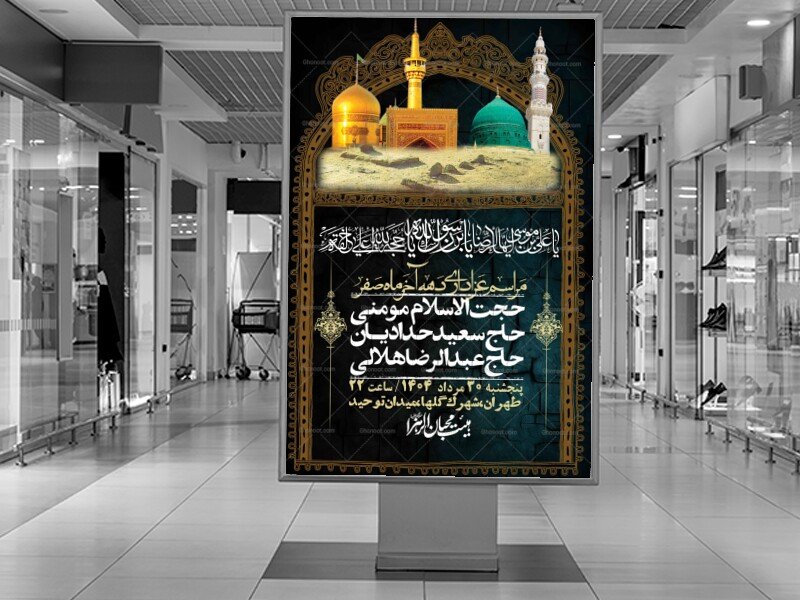 یا علی بن موسی ایها الرضا یابن رسول الله یا حجة الله علی خلقه
مراسم عزاداری دهه آخر ماه صفر
حجت الاسلام مومنی
حاج سعید حدادیان
حاج عبدالرضا هلالی
پنجشنبه ۳۰ مرداد ۱۴۰۴/ ساعت ۲۲
طهران،شهرک گلها،میدان توحید
هیئت محبان الزهرا
Ghonoot.com